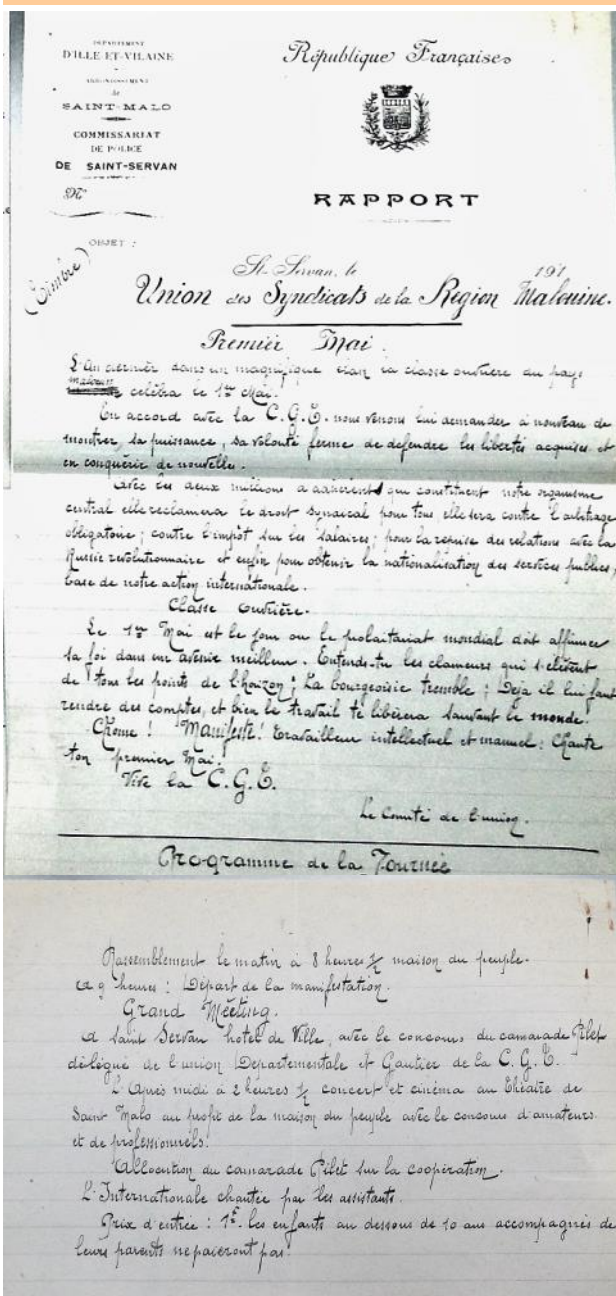 DÉPARTEMENT
D'ILLE-ET-VILAINE
ARRONDISSEMENT
de
SAINT-MALO
COMMISSARIAT
DE POLICE
DE SAINT-SERVAN
No
République Française
RAPPORT
OBJET :
(Timbre)
St-Servan, le 191
Union des Syndicats de la Région Malouine.
Premier Mai.
L'An dernier dans un magnifique élan la classe ouvrière du pays
malouin célébra le 1er Mai.
En accord avec la C.G.T. nous venons lui demander à nouveau de
montrer, sa puissance, sa volonté ferme de défendre les libertés acquises et
en conquérir de nouvelles.
Avec les deux millions d'adhérents qui constituent notre organisme
central elle réclamera le droit syndical pour tous elle sera contre l'arbitrage
obligatoire ; contre l'impôt sur les salaires ; pour la reprise des relations avec la
Russie révolutionnaire et enfin pour obtenir la nationalisation des services publics,
base de notre action internationale.
Classe ouvrière.
Le 1er Mai est le jour ou le prolaitariat mondial doit affirmer
sa foi dans un avenir meilleur. Entends-tu les clameurs qui s'élèvent
de tous les points de l'horizon ; La bourgeoisie tremble ; Déja il lui faut
rendre des comptes, et bien le travail te libérera sauvant le monde.
Chome ! Manifeste ! Travailleur intellectuel et manuel : Chante
ton premier Mai.
Vive la C.G.T.
Le Comité de l'union.
Programme de la Tournée
Rassemblement le matin à 8 heures ½ maison du peuple.
à 9 heures : Départ de la manifestation.
Grand Méeting.
à Saint Servan hotel de Ville, avec le concours du camarade Pilet
délégué de l'union Départementale et Gautier de la C.G.T.
L'Après midi à 2 heures ½ concert et cinéma au Théatre de
Saint Malo au profit de la maison du peuple avec le concours d'amateurs
et de professionnels.
Allocution du camarade Pilet sur la coopération.
L'Internationale chantée par les assistants.
Prix d'entrée : 1f. les enfants au dessous de 10 ans accompagnés de
leurs parents ne paieront pas.